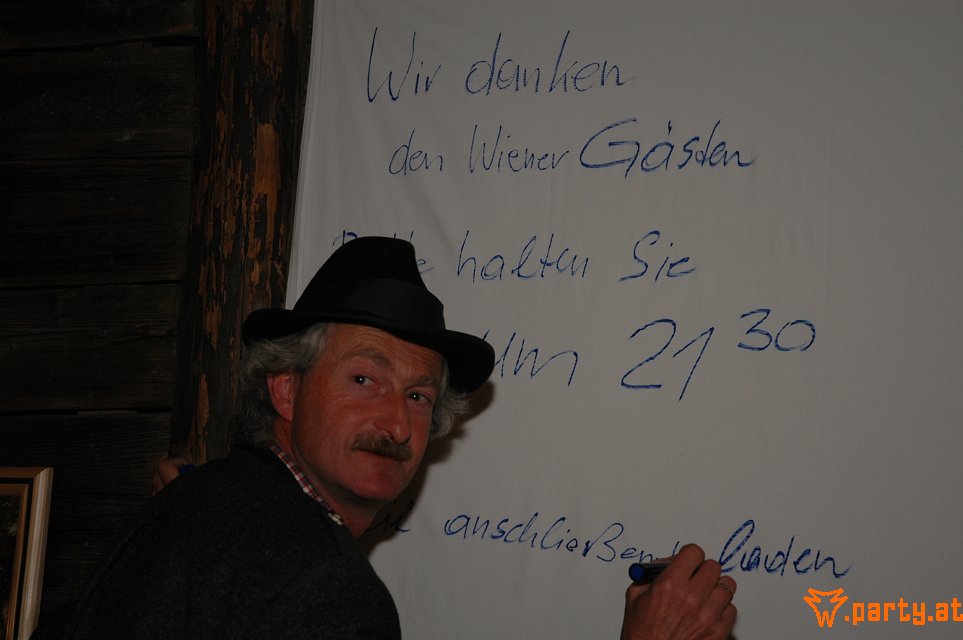 Wir danken
den Wiener Gästen
halten Sie
um 21 30
anschließend laden
.party.at